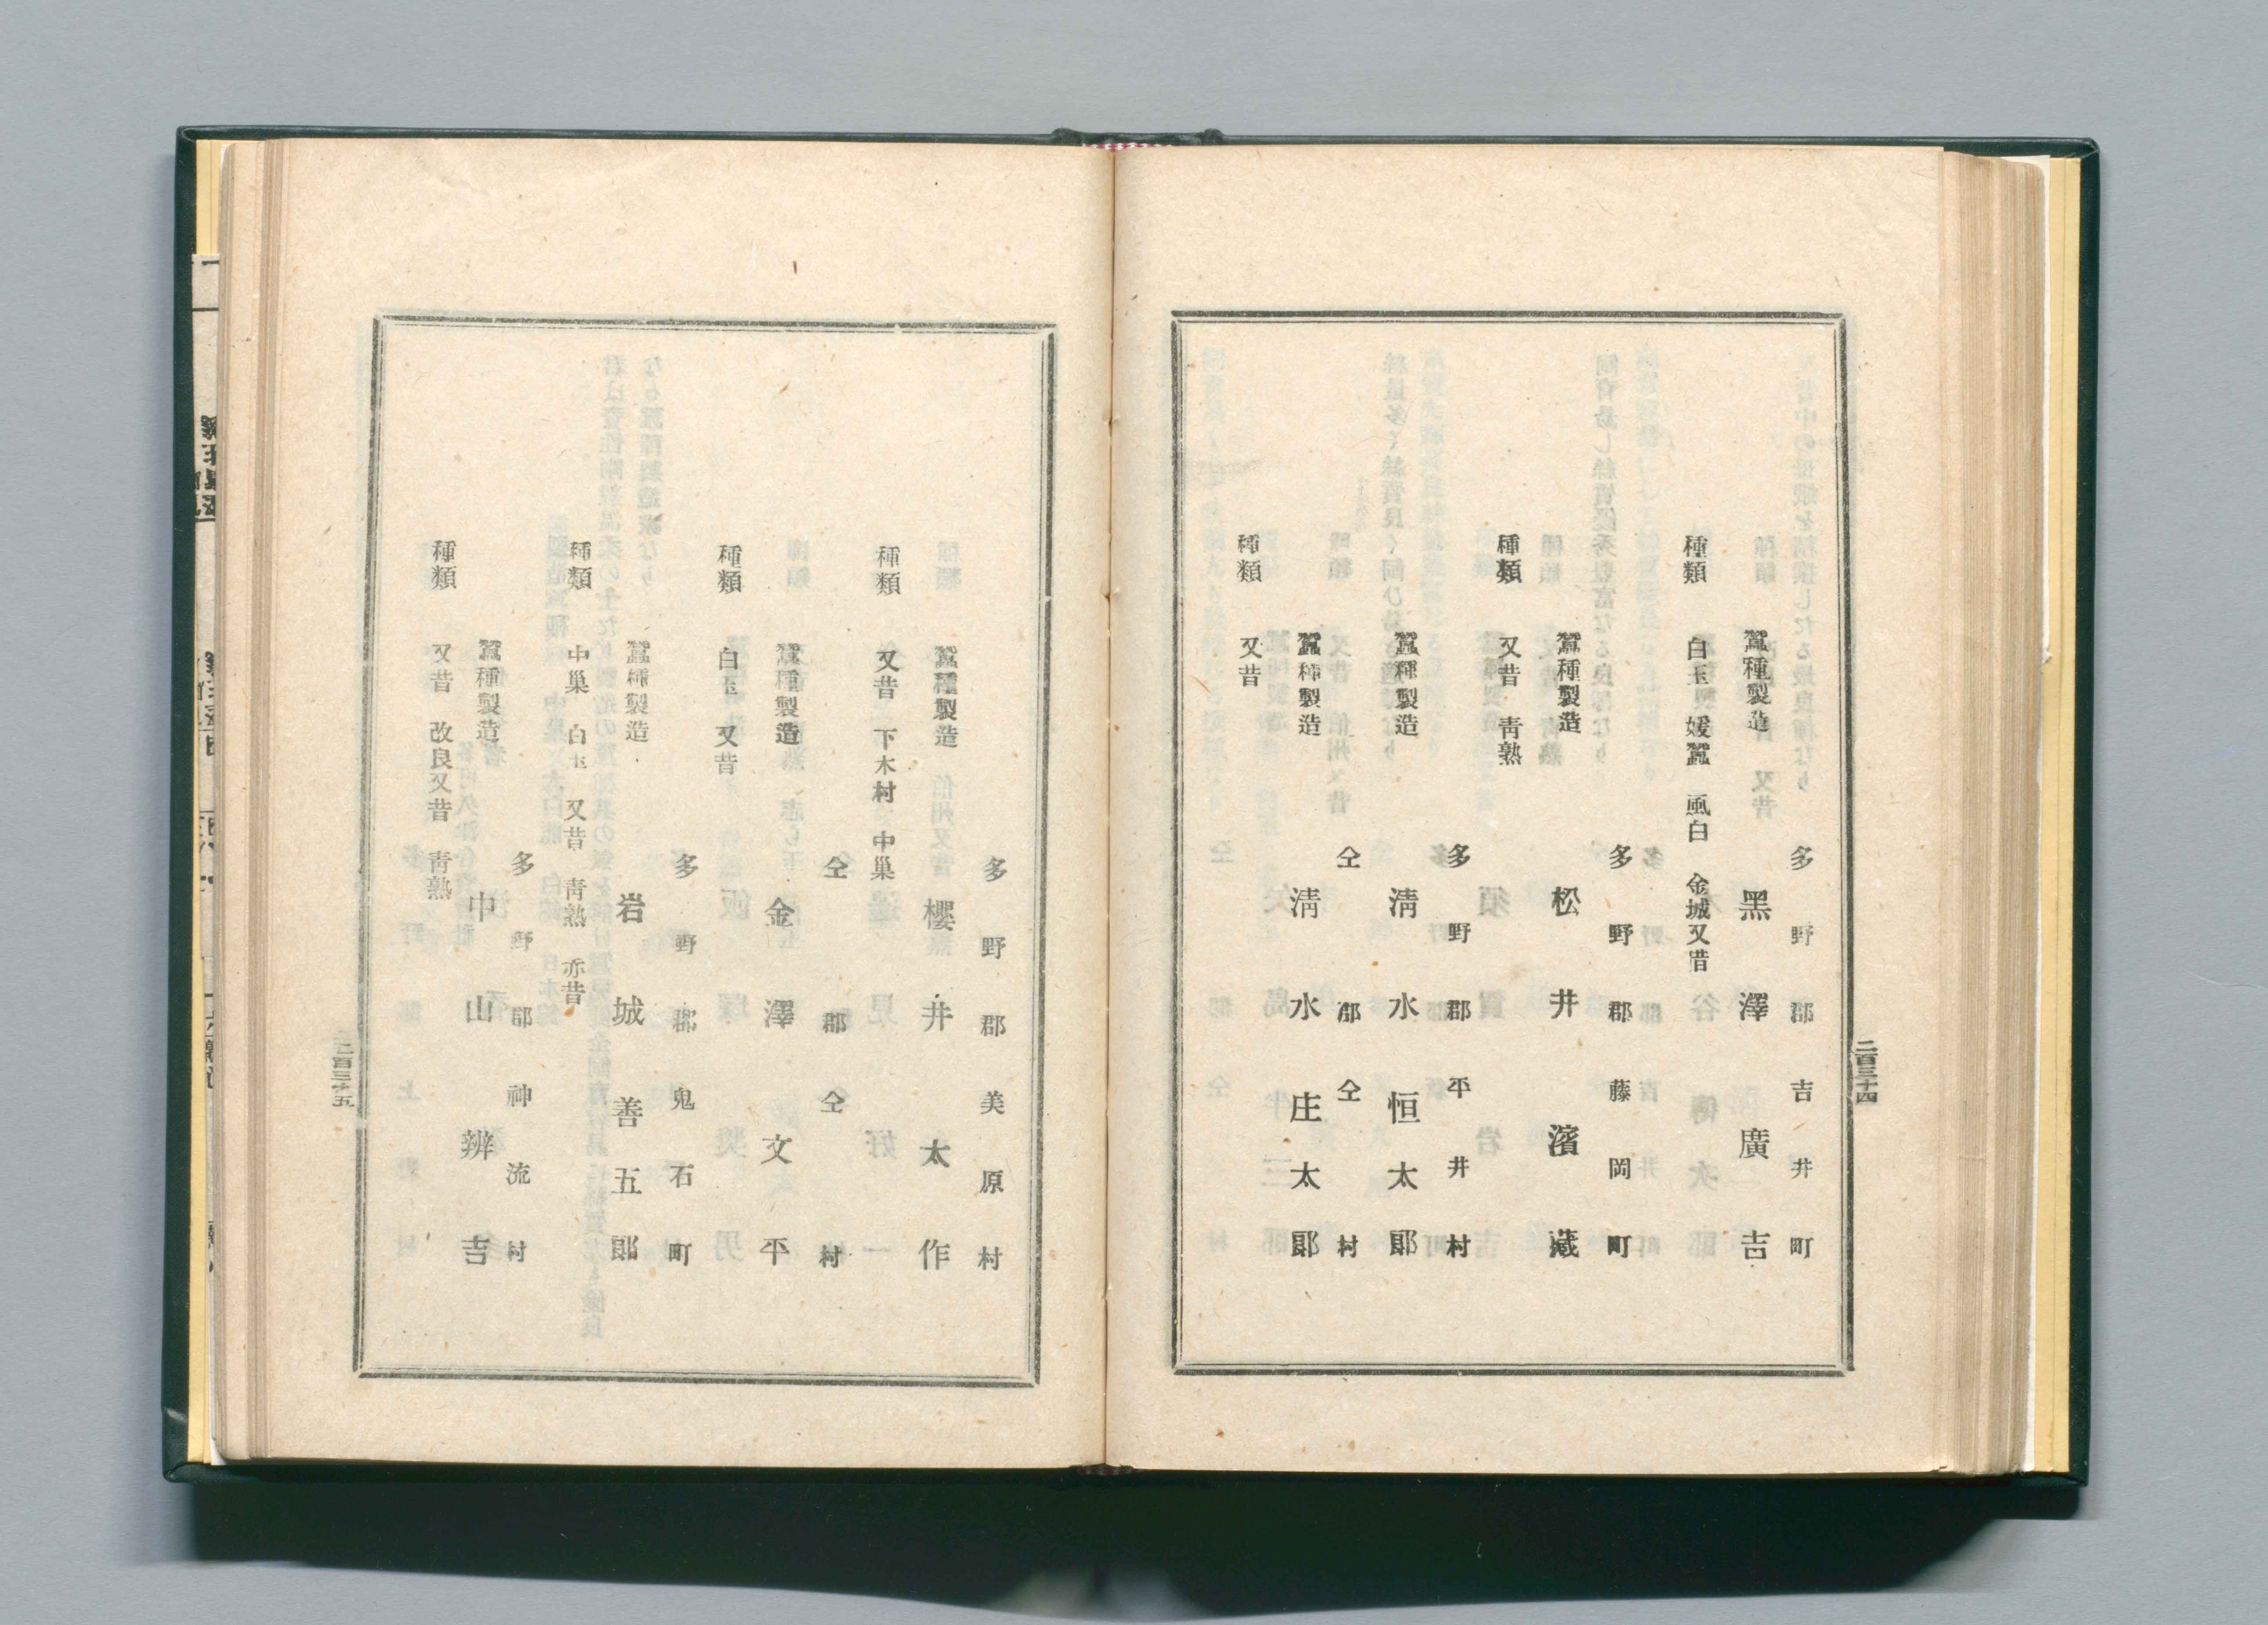 二百三十四
多野郡吉井町
蠶種製造 黑澤廣吉
種類 白玉 媛蠶 風白 金城又昔
多野郡藤岡町
蠶種製造 松井濱藏
種類 又昔 靑熟
多野郡平井村
蠶種製造 淸水恒太郎
仝郡仝村
蠶種製造 淸水庄太郎
種類 又昔
多野郡美原村
蠶種製造 櫻井太作
種類 又昔 下木村 中巢
仝郡仝村
蠶種製造 金澤文平
種類 白玉 又昔
多野郡鬼石町
蠶種製造 岩城善五郎
種類 中巢 白玉 又昔 靑熟 赤昔
多野郡神流村
蠶種製造 中山辨吉
種類 又昔 改良又昔 靑熟
二百三十五